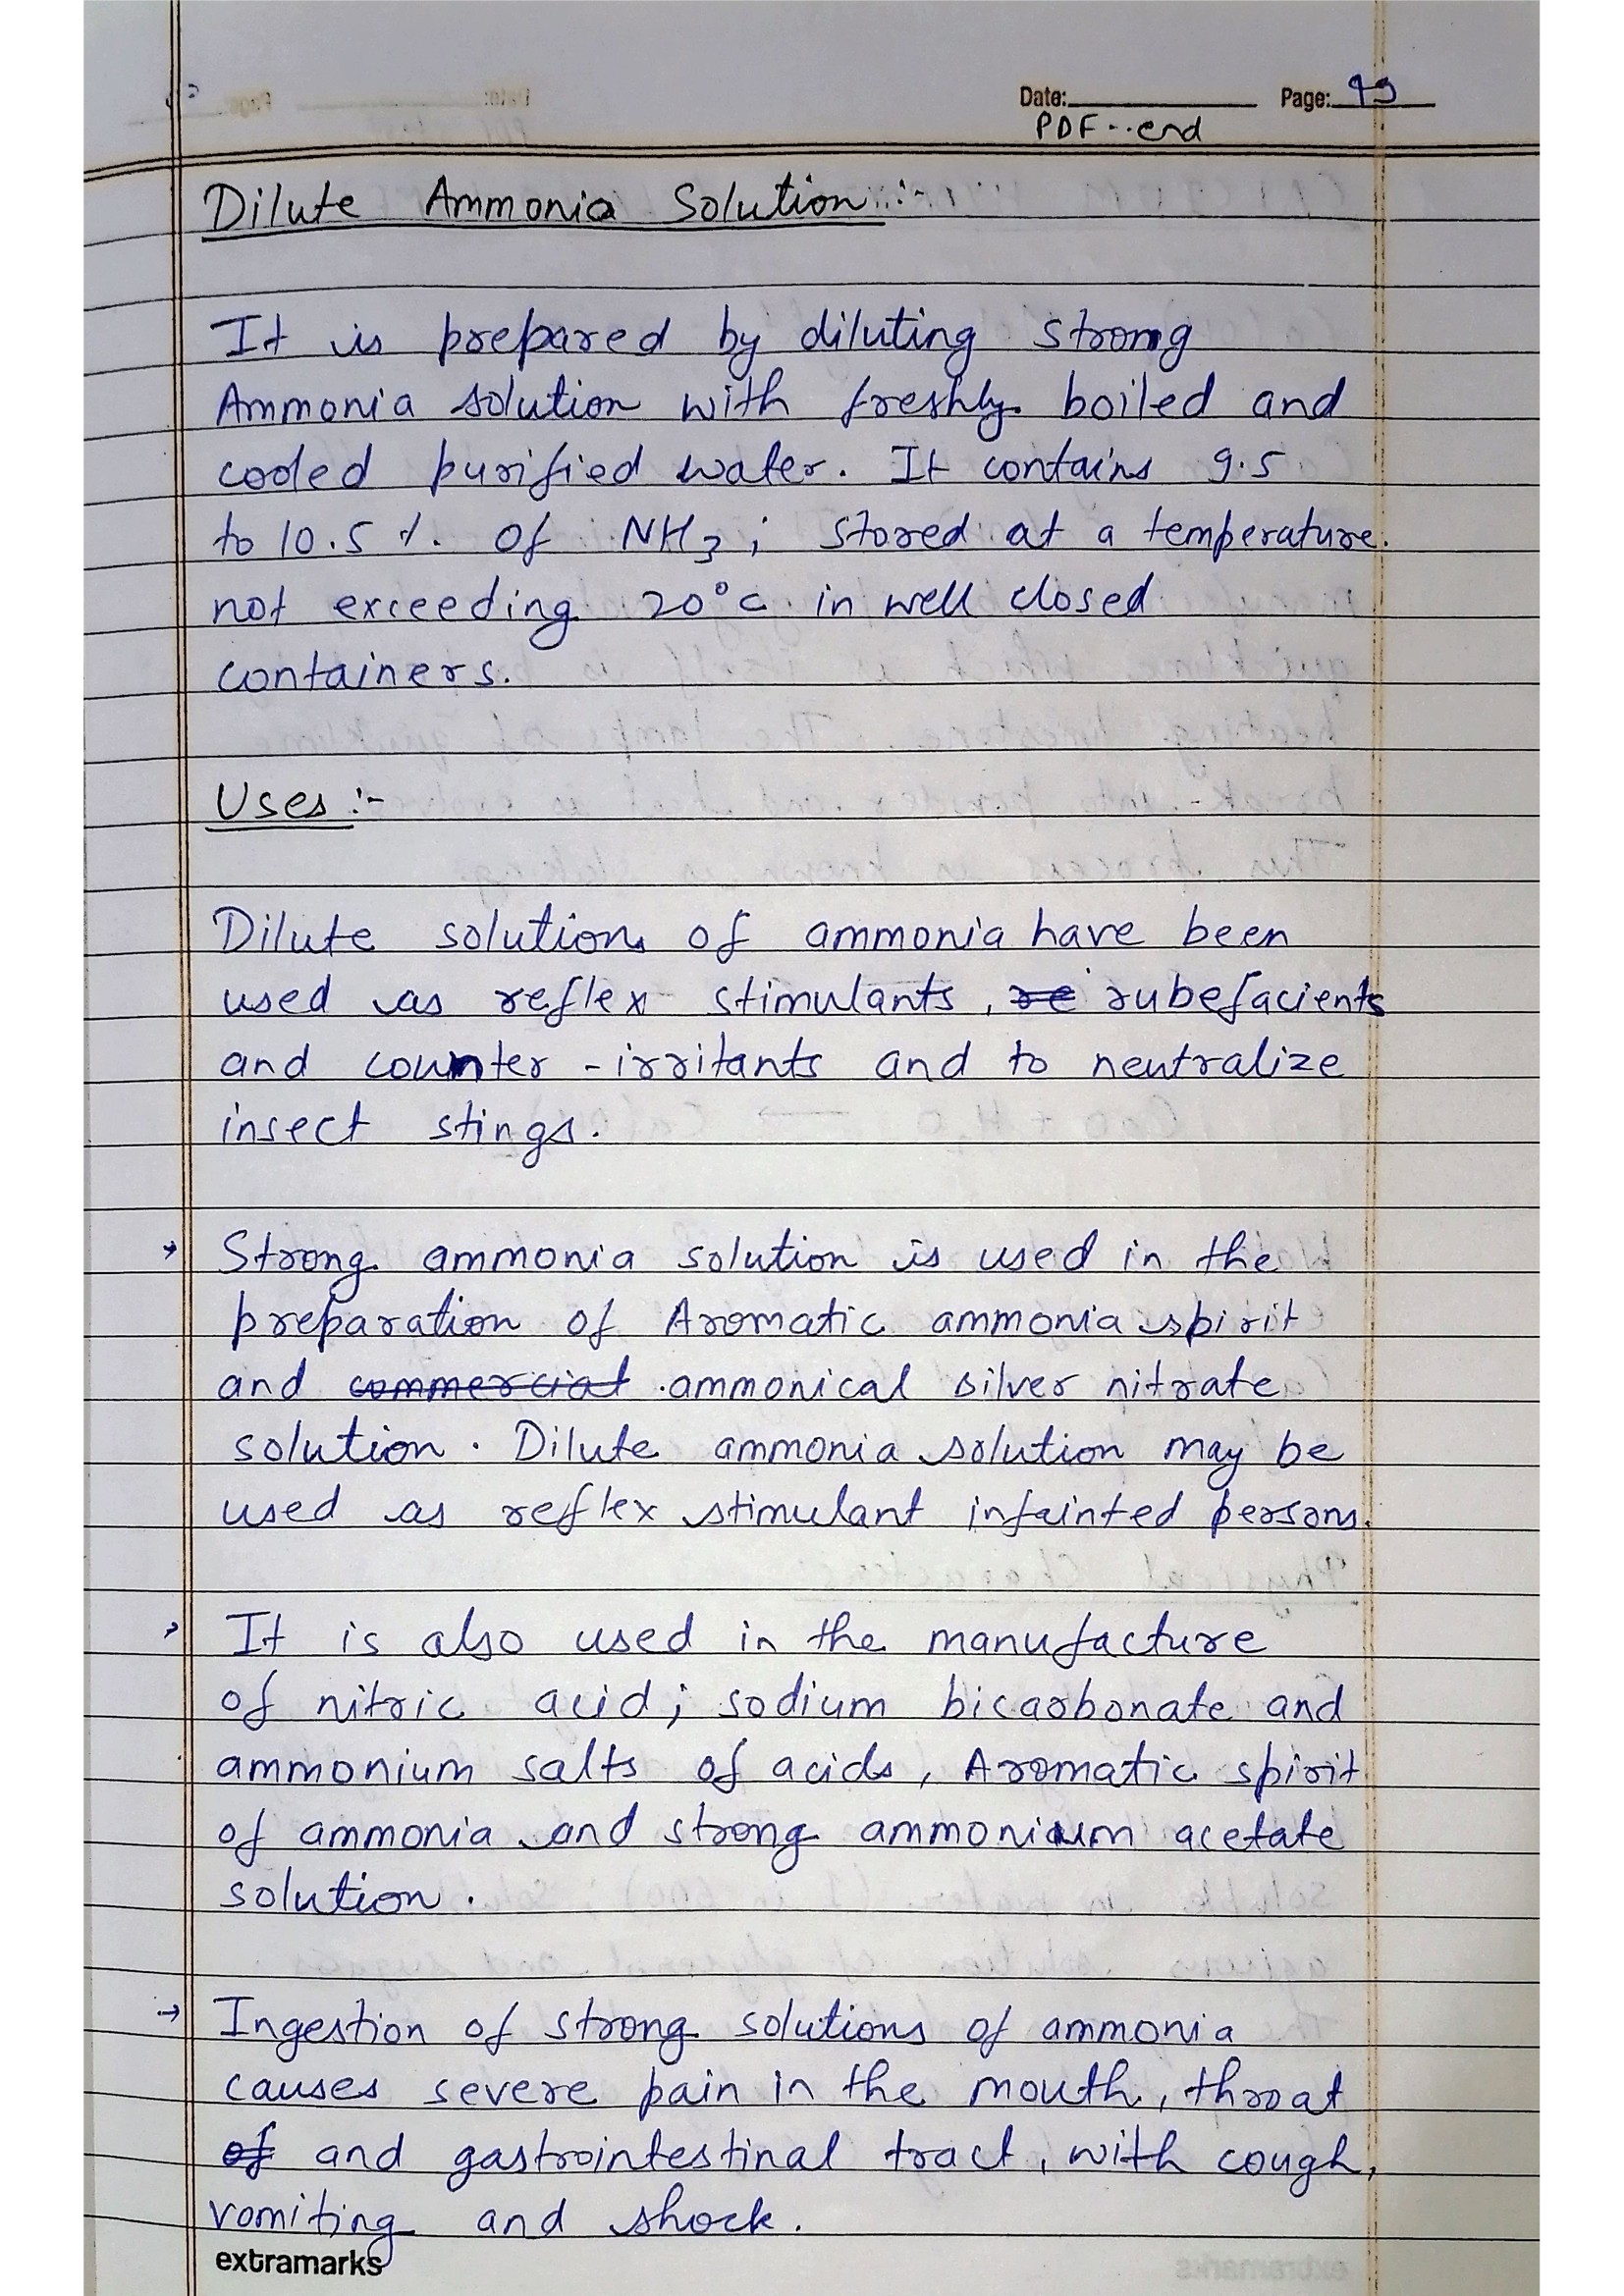 Date: Page: 49
PDF--end
Dilute Ammonia Solution :-
It is prepared by diluting strong
Ammonia solution with freshly boiled and
cooled purified water. It contains 9.5
to 10.5 % of NH3; stored at a temperature
not exceeding 20°C in well closed
containers.
Uses :-
Dilute solutions of ammonia have been
used as reflex stimulants, re rubefacients
and counter-irritants and to neutralize
insect stings.
→ Strong ammonia solution is used in the
preparation of Aromatic ammonia spirit
and commercial ammonical silver nitrate
solution. Dilute ammonia solution may be
used as reflex stimulant in fainted persons.
→ It is also used in the manufacture
of nitric acid; sodium bicarbonate and
ammonium salts of acids, Aromatic spirit
of ammonia and strong ammonium acetate
solution.
→ Ingestion of strong solutions of ammonia
causes severe pain in the mouth, throat
of and gastrointestinal tract, with cough,
vomiting and shock.
extramarks